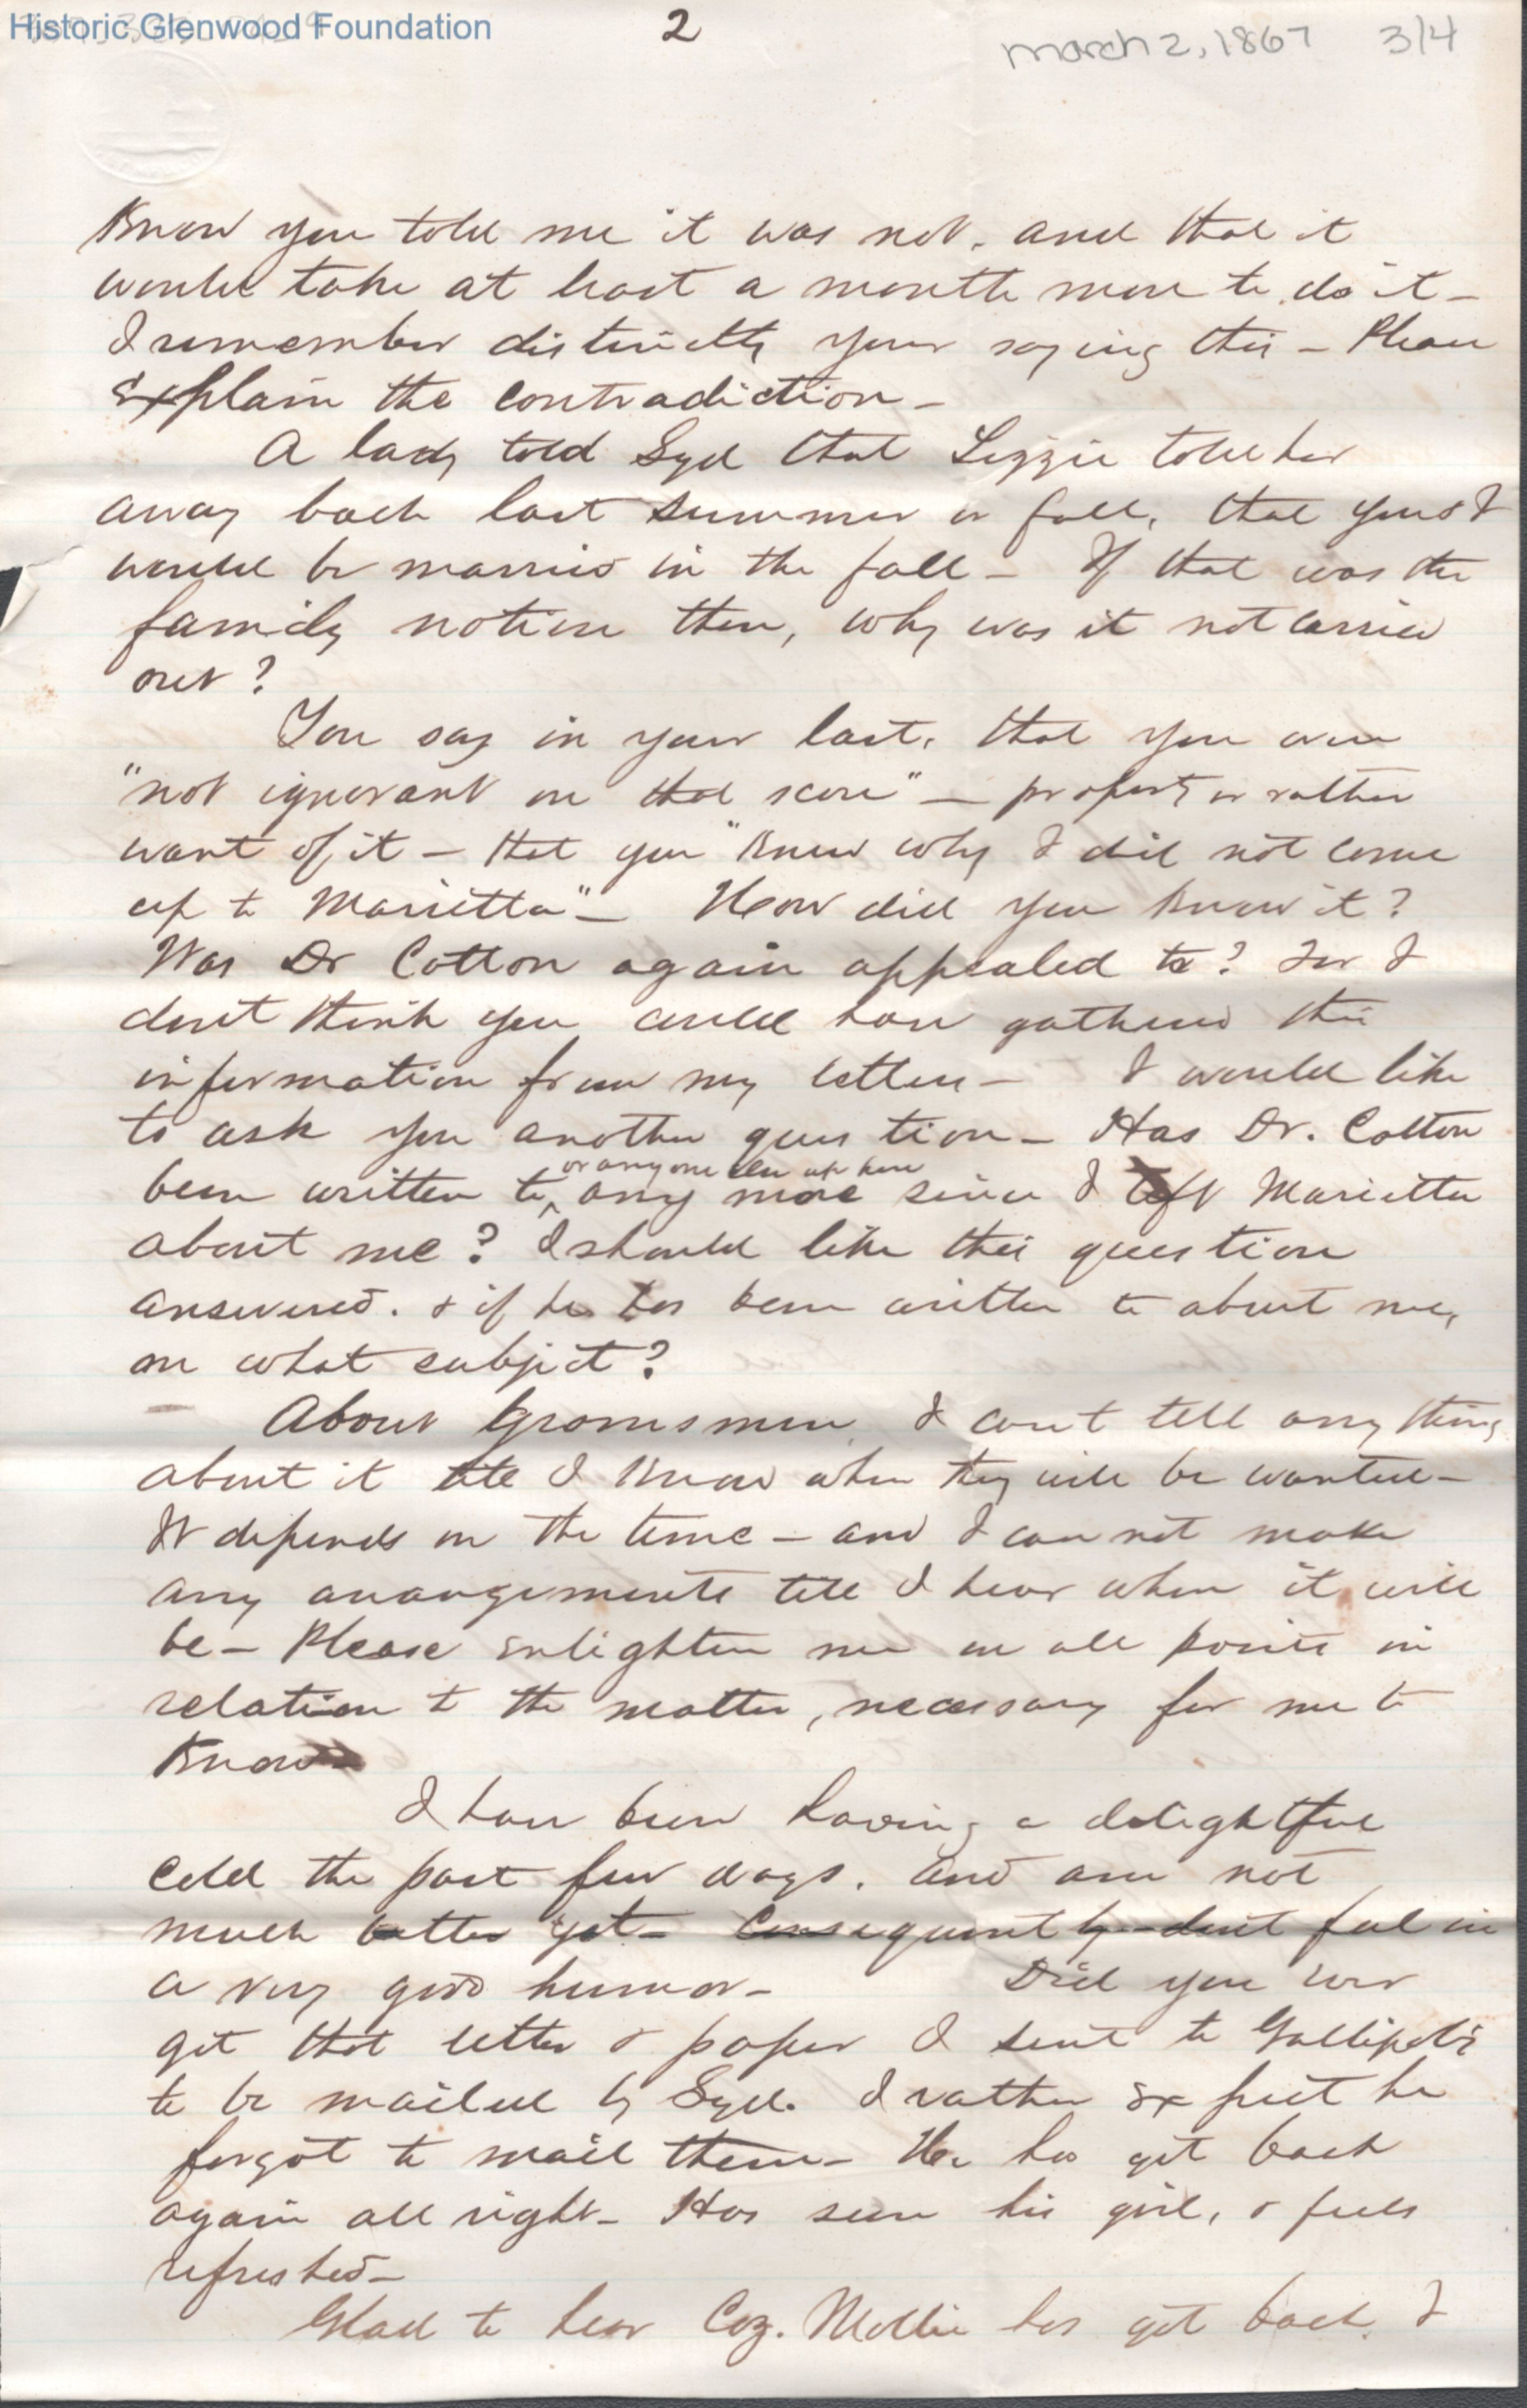 Historic Glenwood Foundation
2
March 2, 1867 3/4
Know you told me it was not, and that it
would take at least a month more to do it –
I remember distinctly your saying this – Please
explain the contradiction –
A lady told Syd that Lizzie told her
away back last summer or fall, that you & I
would be married in the fall – If that was the
family notion then, why was it not carried
out?
You say in your last, that you are
"not ignorant on that score" – property or rather
want of it – that you "knew why I did not come
up to Marietta" – How did you know it?
Was Dr Cotton again appealed to? For I
dont think you could have gathered this
information from my letters – I would like
to ask you another question – Has Dr. Cotton
or any one else up here
been written to, any more since I left Marietta
about me? I should like this question
answered. & if he has been written to about me,
on what subject?
About Groomsmen, I can't tell any thing
about it till I know when they will be wanted –
It depends on the time – and I can not make
any arrangements till I hear when it will
be – Please enlighten me on all points in
relation to the matter, necessary for me to
Know –
I have been having a delightful
cold the past few days. and am not
much better yet – Consequently dont feel in
a very good humor – Did you ever
get that letter & paper I sent to Gallipolis
to be mailed by Syd. I rather expect he
forgot to mail them – He has got back
again all right – Has seen his girl, & feels
refreshed –
Glad to hear Coz. Mollie has got back. I